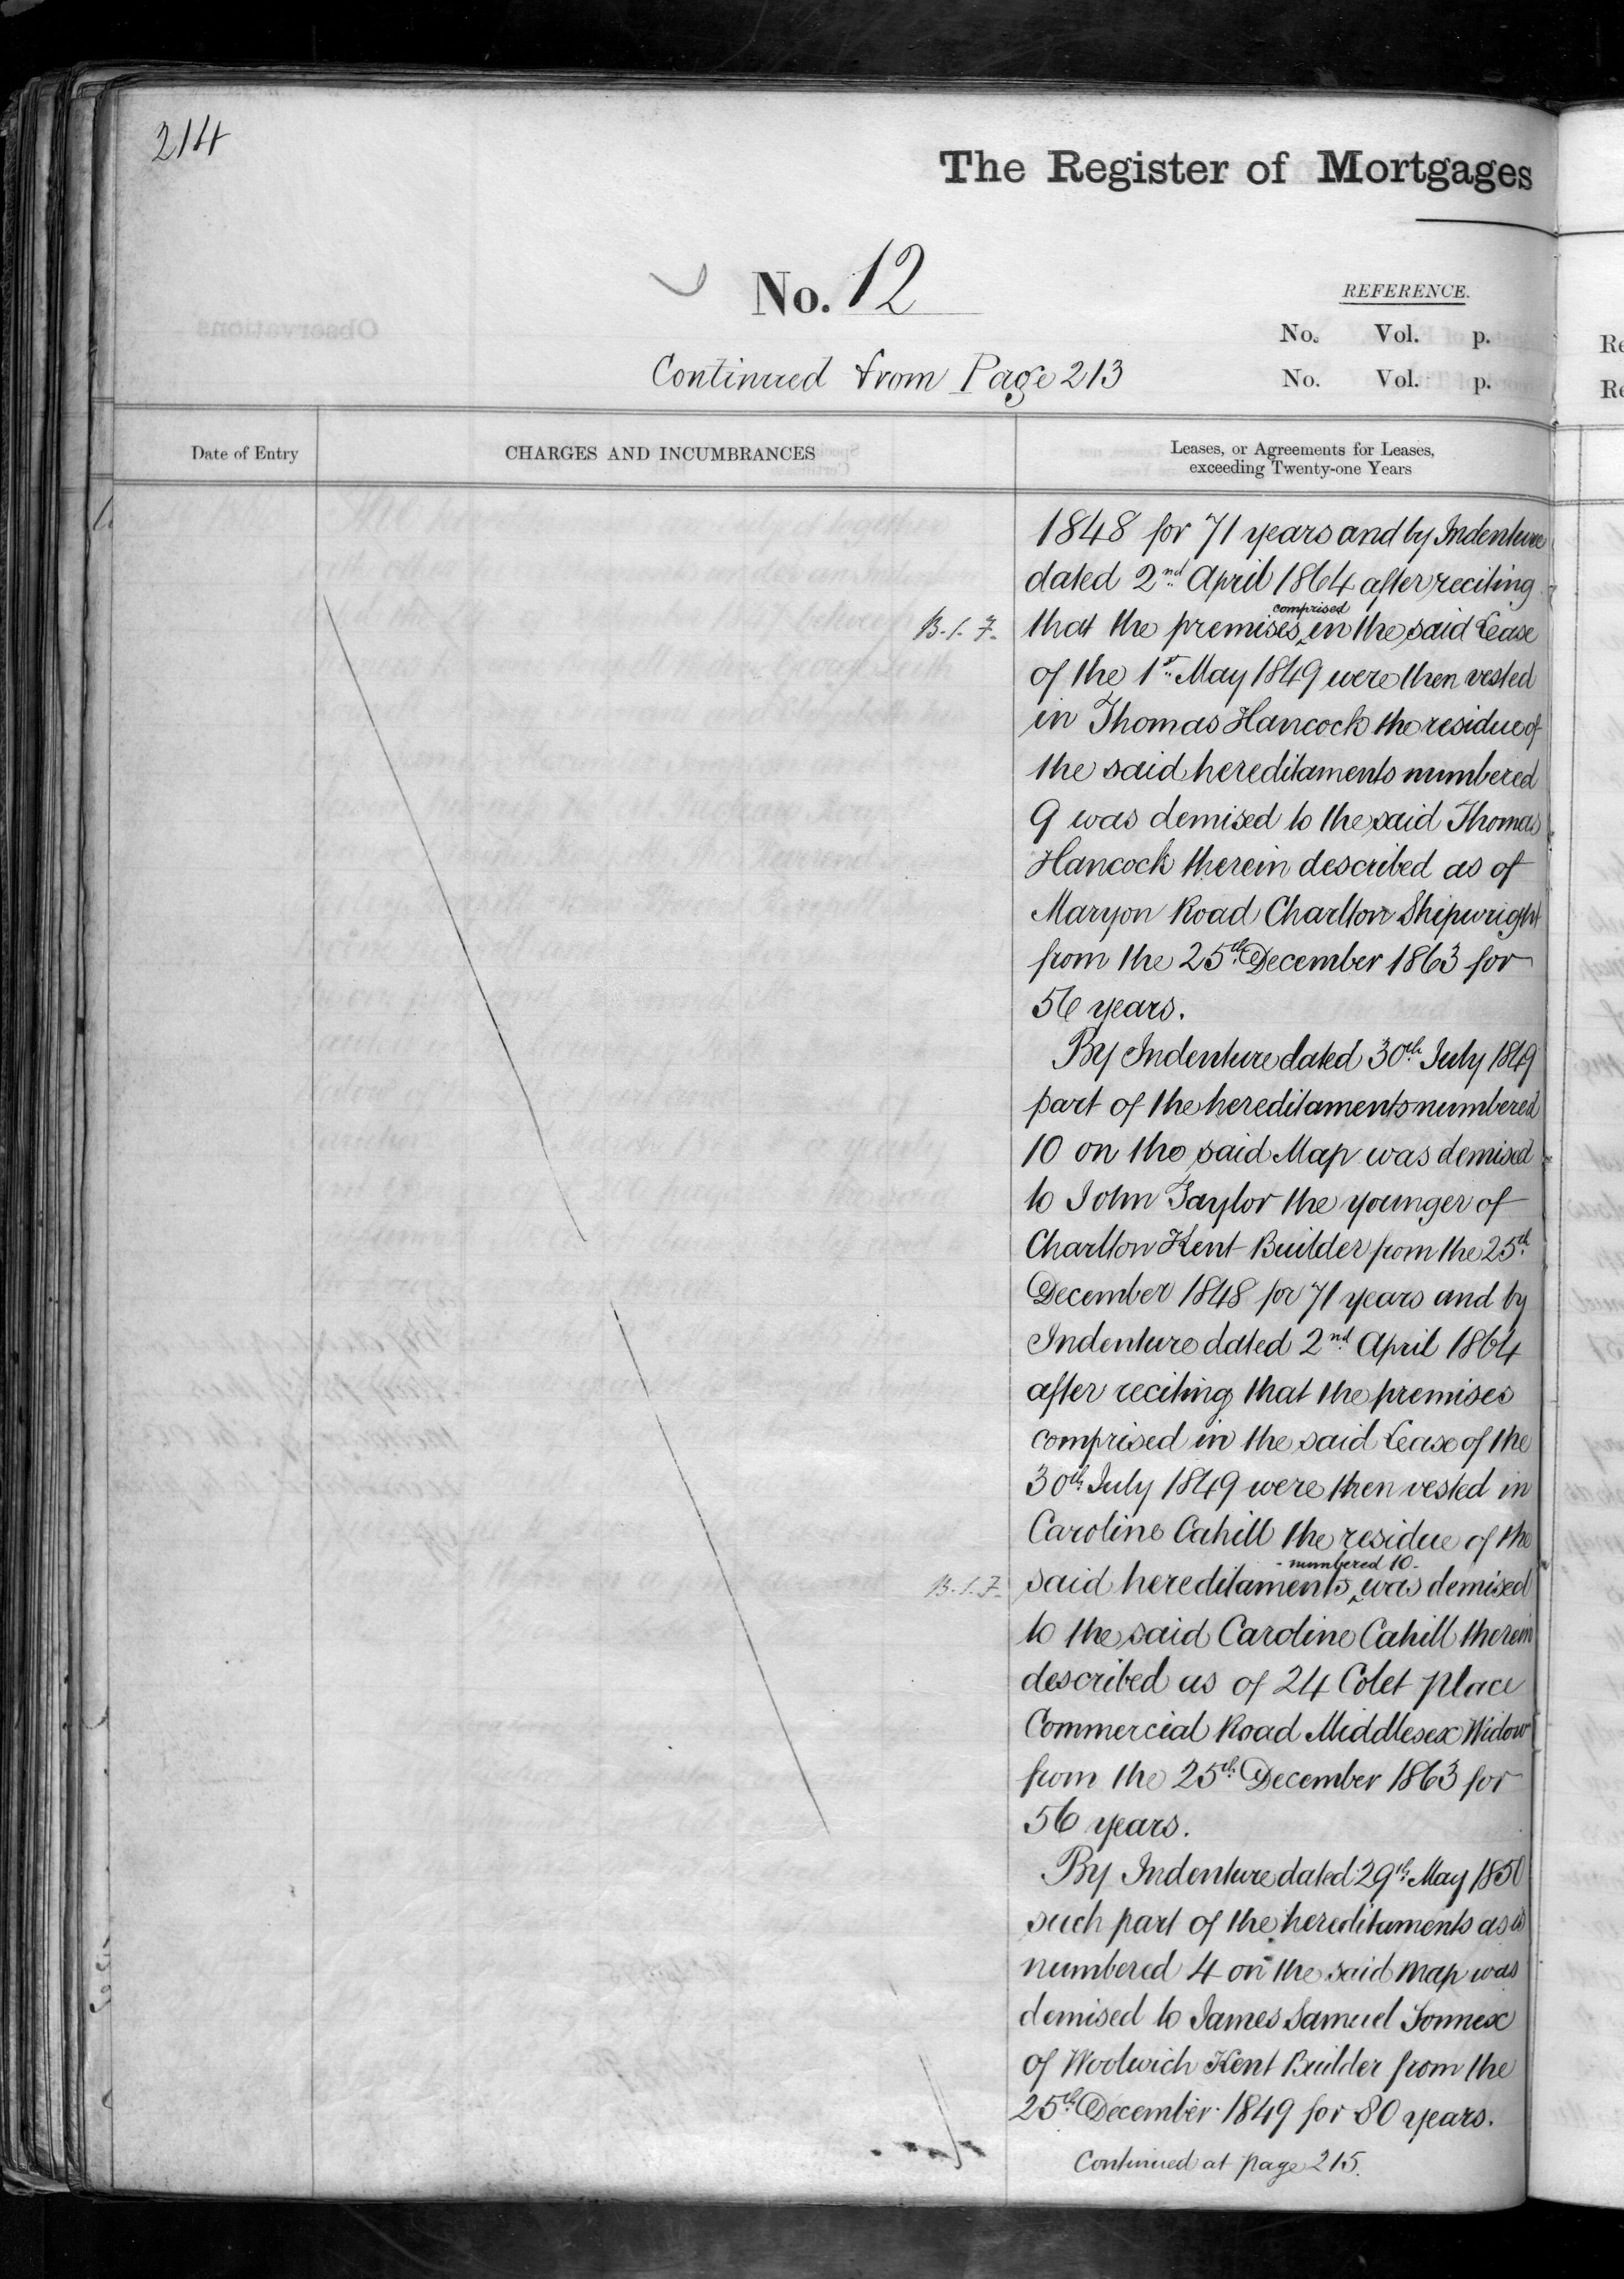 214
The Register of Mortgages
No. 12
REFERENCE.
No. Vol. p.
Continued from Page 213
No. Vol. p.
Date of Entry
CHARGES AND INCUMBRANCES
Leases, or Agreements for Leases,
exceeding Twenty-one Years
1848 for 71 years and by Indenture
dated 2nd April 1864 after reciting
comprised
B.I.F. that the premises ‸ in the said Lease
of the 1st May 1849 were then vested
in Thomas Hancock the residue of
the said hereditaments numbered
9 was demised to the said Thomas
Hancock therein described as of
Maryon Road Charlton Shipwright
from the 25th December 1863 for
56 years.
By Indenture dated 30th July 1849
part of the hereditaments numbered
10 on the said Map was demised
to John Taylor the younger of
Charlton Kent Builder from the 25th
December 1848 for 71 years and by
Indenture dated 2nd April 1864
after reciting that the premises
comprised in the said Lease of the
30th July 1849 were then vested in
Caroline Cahill the residue of the
- numbered 10 -
B.I.F. said hereditaments ‸ was demised
to the said Caroline Cahill therein
described as of 24 Colet Place
Commercial Road Middlesex Widow
from the 25th December 1863 for
56 years.
By Indenture dated 29th May 1850
such part of the hereditaments as is
numbered 4 on the said Map was
demised to James Samuel Sonnex
of Woolwich Kent Builder from the
25th December 1849 for 80 years.
Continued at page 215.